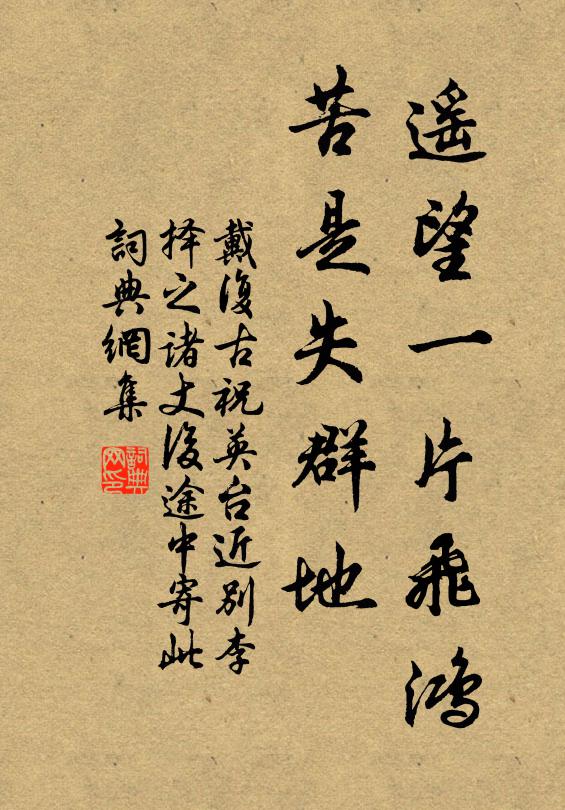 遥望一片飛鴻
苦是失群地
戴復古祝英台近別李
择之諸丈後途中寄此
詞典網集
詞典
网印